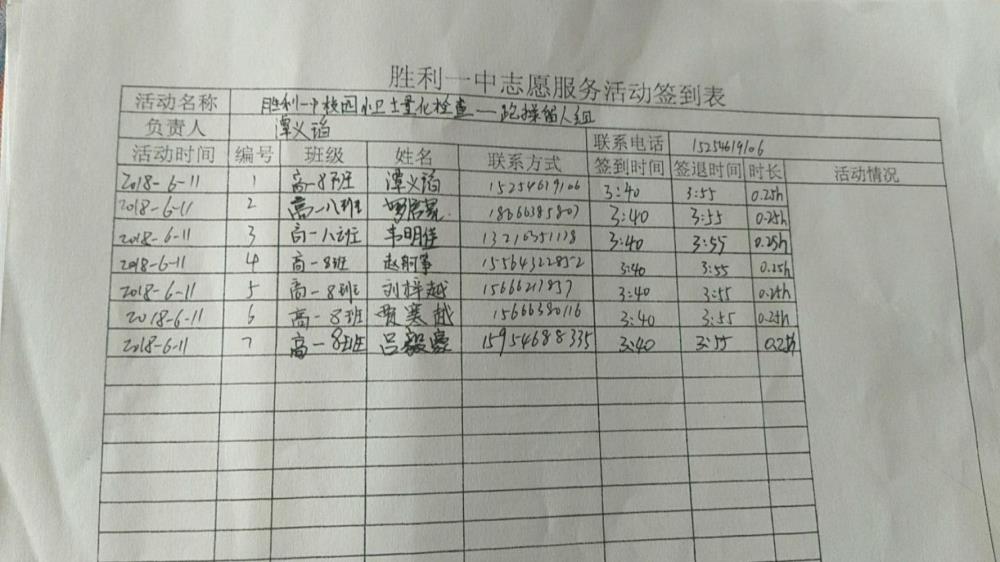 胜利一中志愿服务活动签到表
活动名称 胜利一中校园卫生量化检查——跑操留人组
负责人 谭义韬 联系电话 15254619106
活动时间 编号 班级 姓名 联系方式 签到时间 签退时间 时长 活动情况
2018-6-11 1 高一8班 谭义韬 15254619106 3:40 3:55 0.25h
2018-6-11 2 高一八班 3:40 3:55 0.25h
2018-6-11 3 高一八班 韦明佳 13210351178 3:40 3:55 0.25h
2018-6-11 4 高一8班 15564322852 3:40 3:55 0.25h
2018-6-11 5 高一8班 刘梓越 15666217837 3:40 3:55 0.25h
2018-6-11 6 高一8班 贾寒越 15666380116 3:40 3:55 0.25h
2018-6-11 7 高一8班 吕毅豪 15954688335 3:40 3:55 0.25h